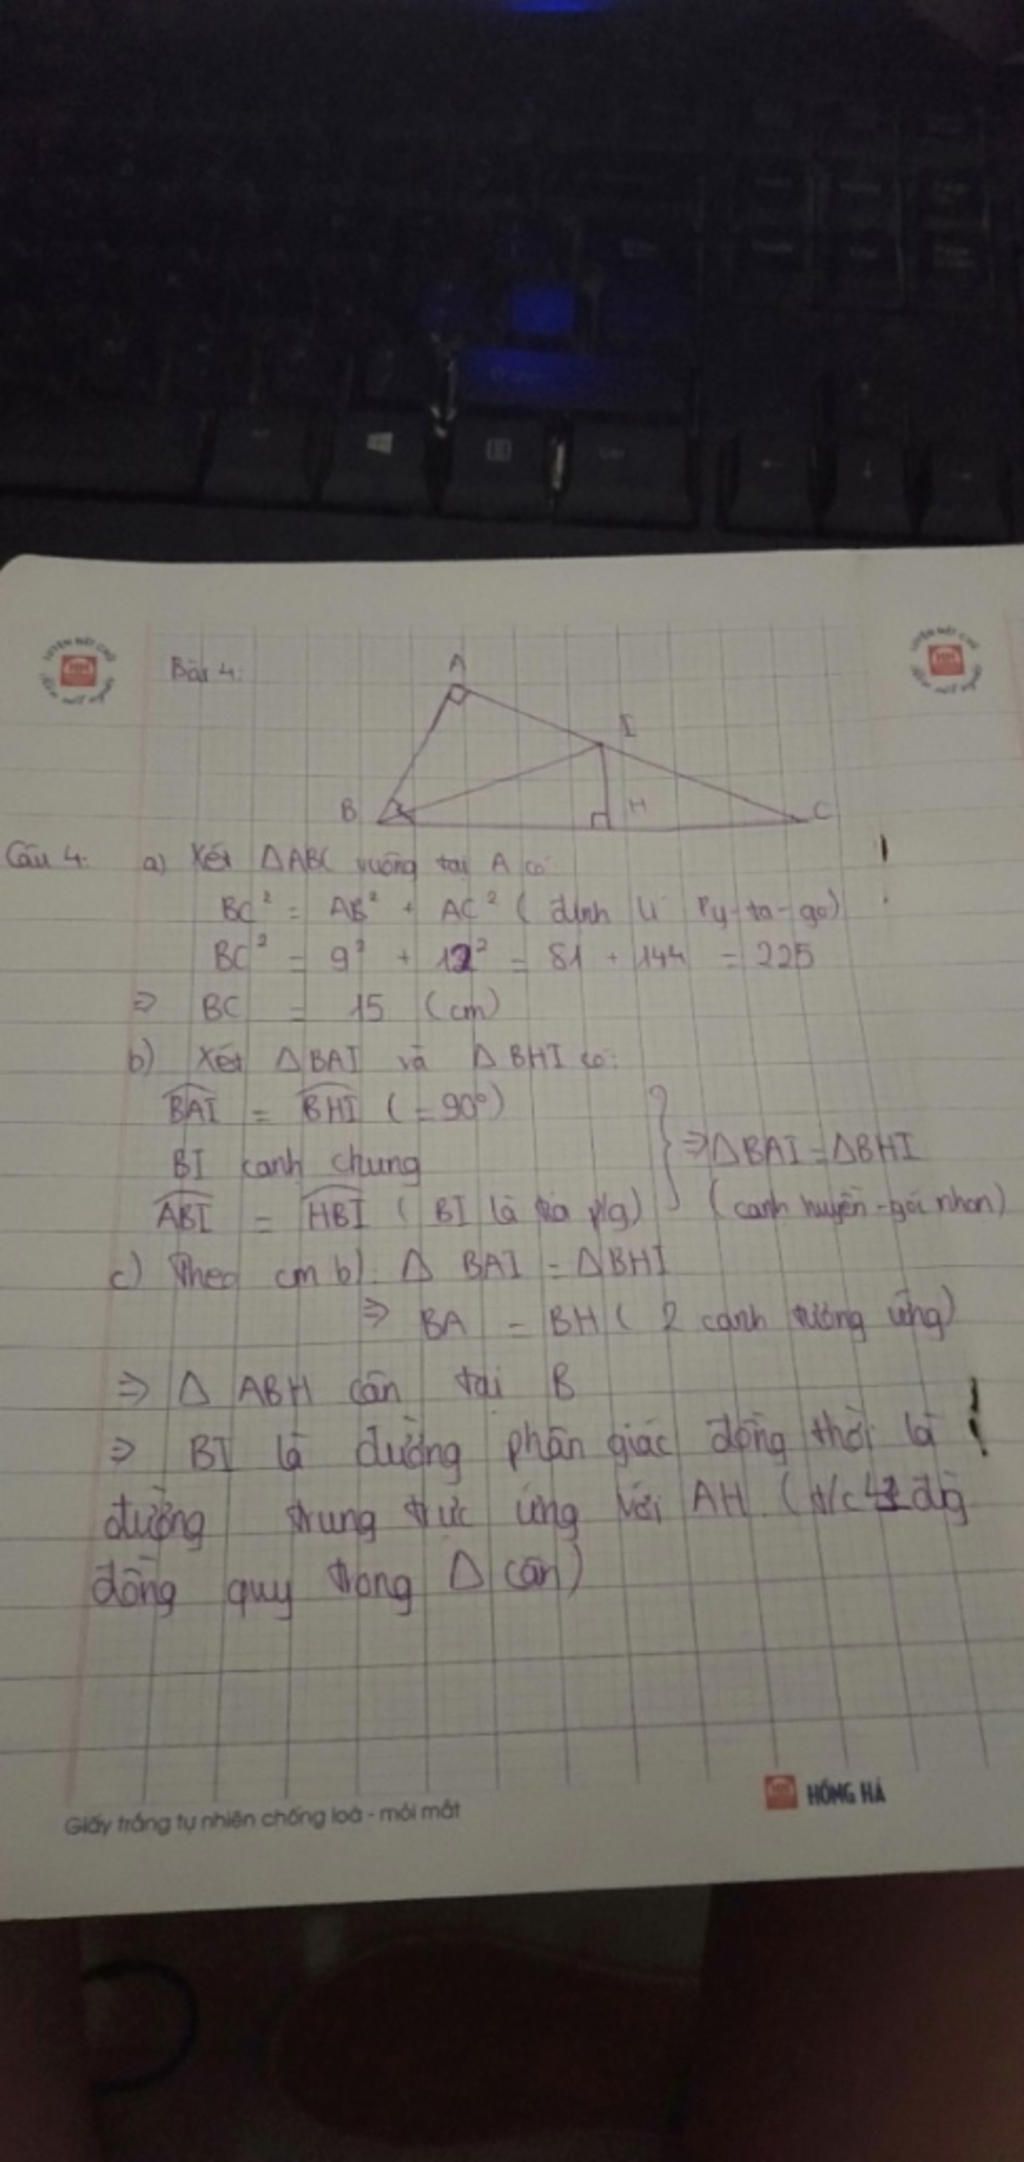 Bài 4:
A
I
B
H
C
Câu 4: a) Xét ΔABC vuông tại A có:
BC² = AB² + AC² ( định lí Py-ta-go)
BC² = 9² + 12² = 81 + 144 = 225
⇒ BC = 15 (cm)
b) Xét ΔBAI và ΔBHI có:
BAI = BHI (= 90°)
BI cạnh chung
ABI = HBI ( BI là tia p/g)
} ⇒ ΔBAI = ΔBHI
(cạnh huyền - góc nhọn)
c) Theo cm b) Δ BAI = ΔBHI
⇒ BA = BH ( 2 cạnh tương ứng)
⇒ Δ ABH cân tại B
⇒ BI là đường phân giác đồng thời là
đường trung trực ứng với AH (t/c 4 đg
đồng quy trong Δ cân)
Giấy trắng tự nhiên chống loá - mỏi mắt
HỒNG HÀ